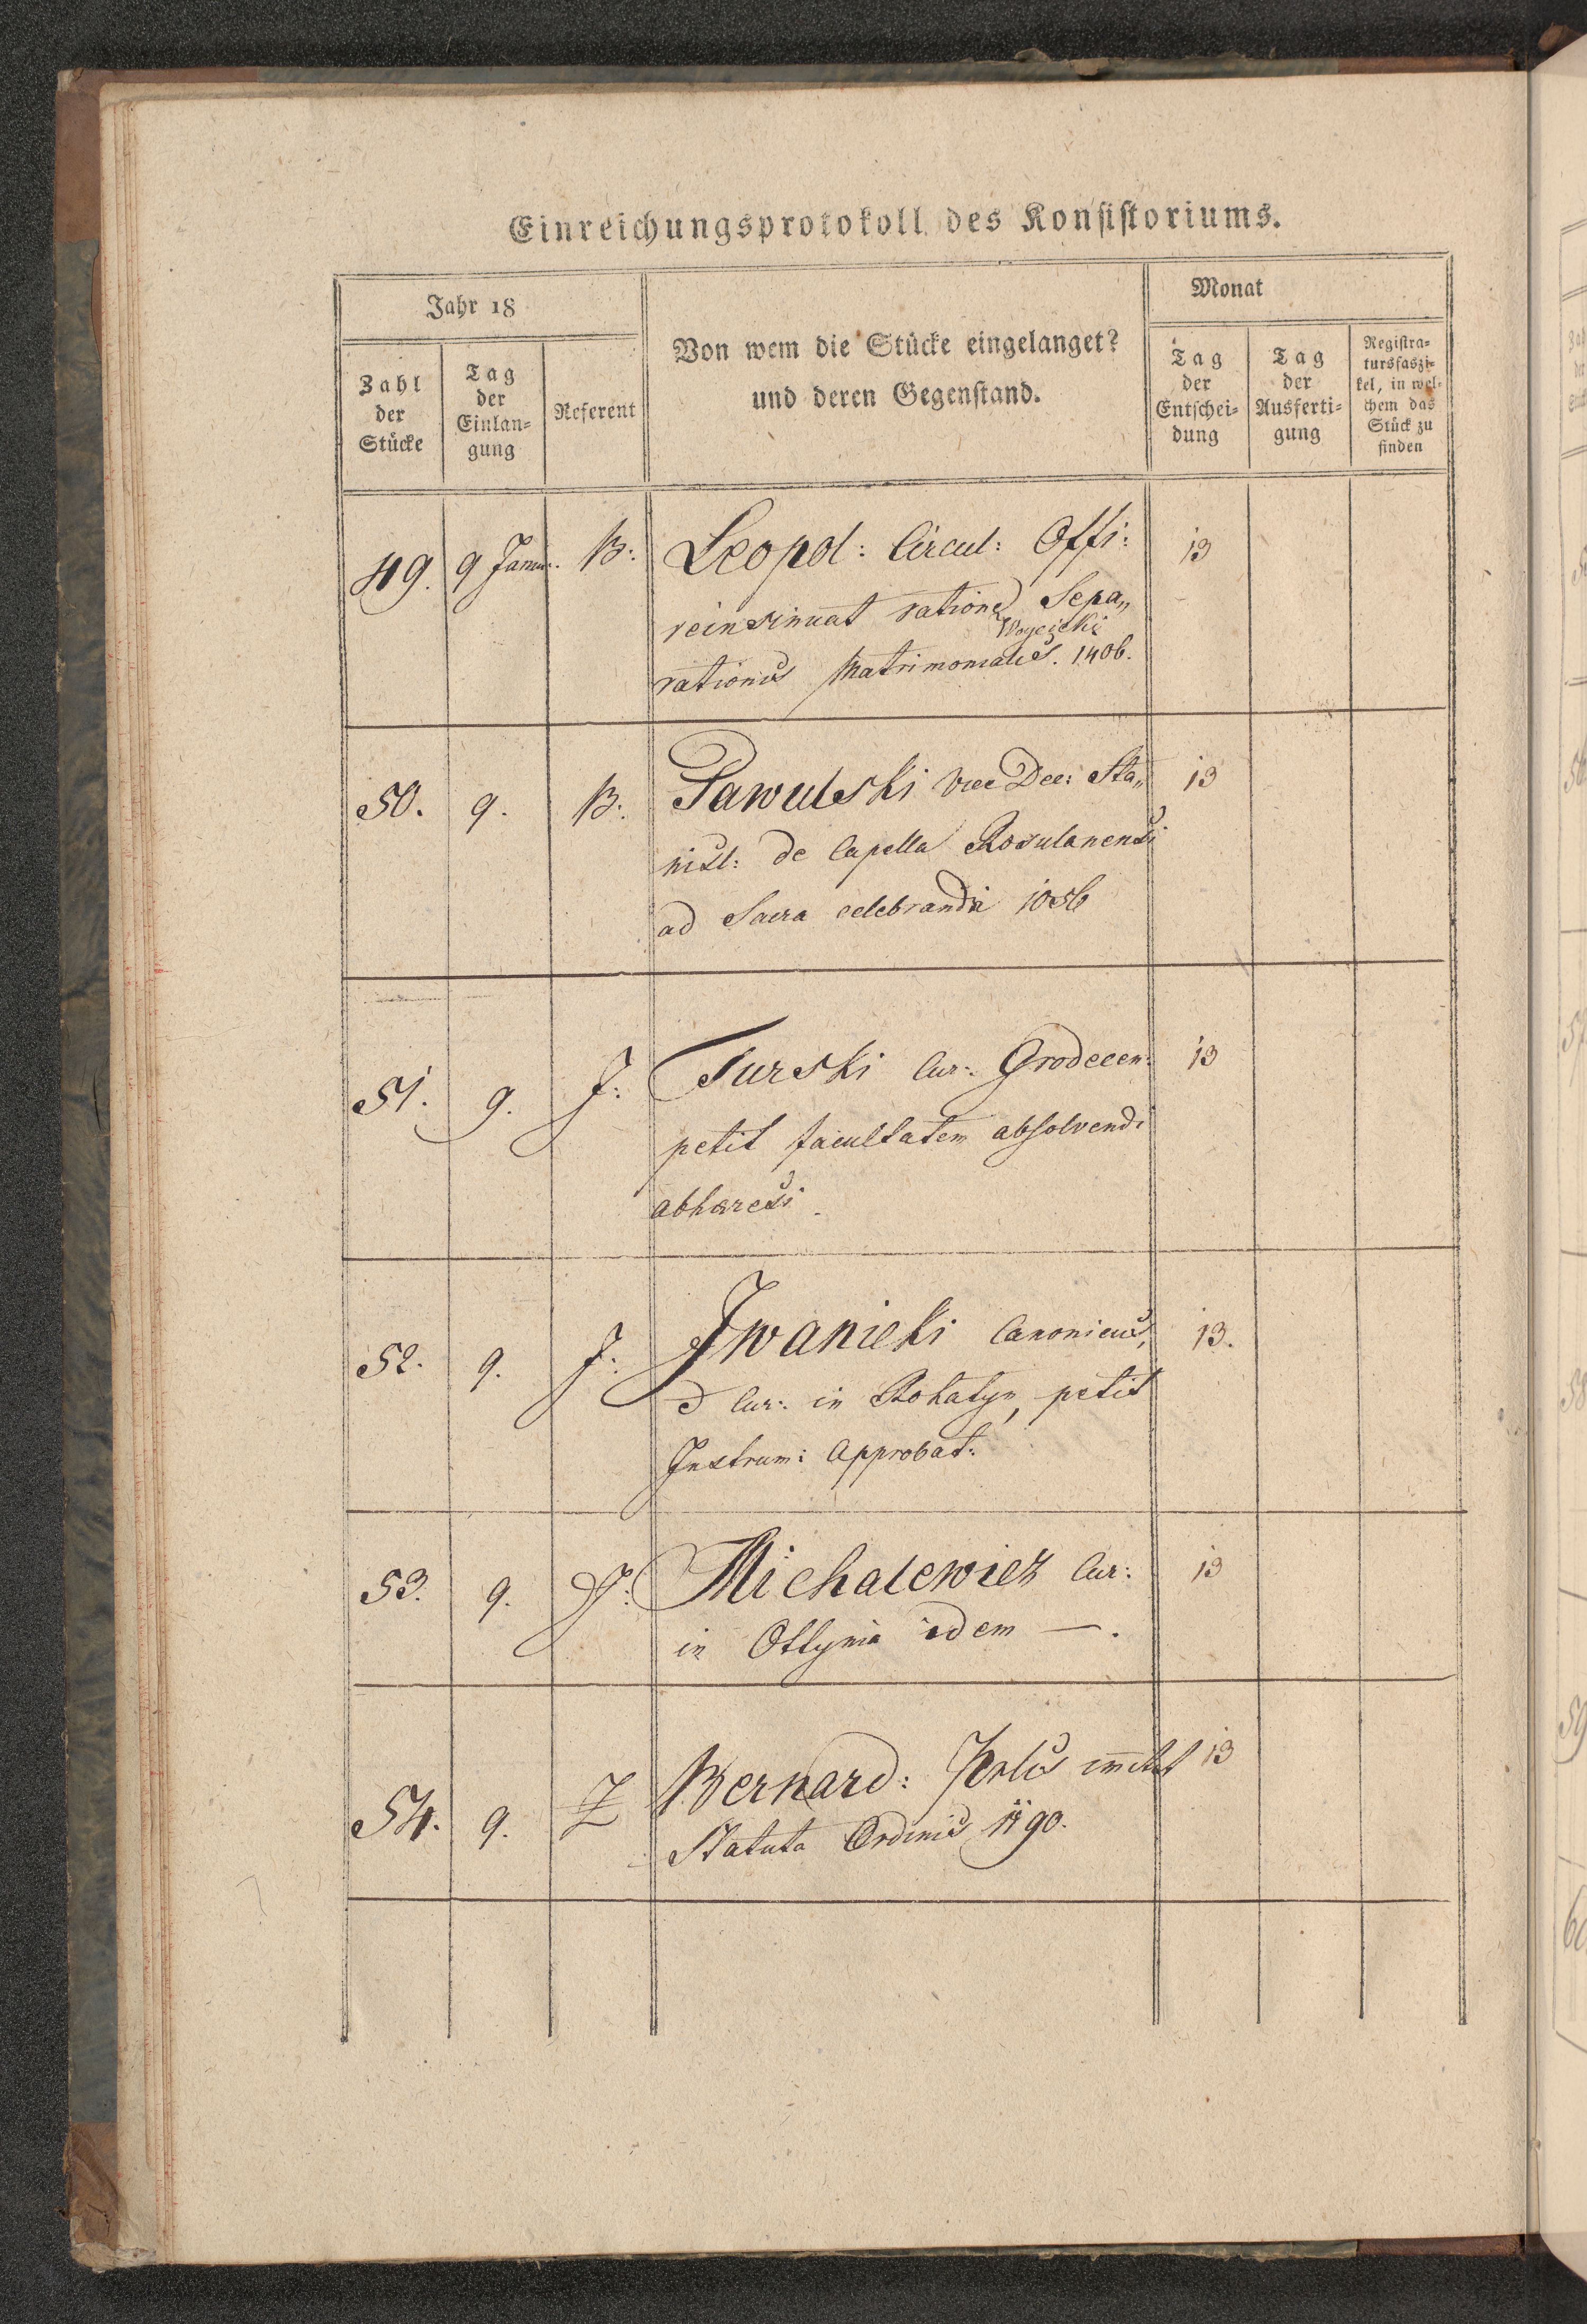 Einreichungsprotokoll des Konsistoriums.
Jahr 18
Zahl der Stücke
Tag der Einlangung
Referent
Von wem die Stücke eingelanget?
und deren Gegenstand.
Monat
Tag der Entscheidung
Tag der Ausfertigung
Registratursfaszikel, in welchem das Stück zu finden
49. 9 Janu: B: Leopol: Circul: Offi: 13
reinsinuat ratione Sepa„
Woycicki
rationis Matrimonialis. 1406.
50. 9. B. Pawulski Vice Dec: Sta„ 13
nisl: de Capella Rosulanensi
ad Sacra celebranda 1056
51. 9. J: Turski Cur: Grodecen: 13
petit facultatem absolvendi
ab haeresi.
52. 9. J: Iwanicki Canonicus, 13.
Cur: in Rohatyn, petit
Instrum: Approbat:
53. 9. J: Michalewicz Cur: 13
in Ottynia idem —.
54. 9. Z Bernard: 13
Statuta Ordinis